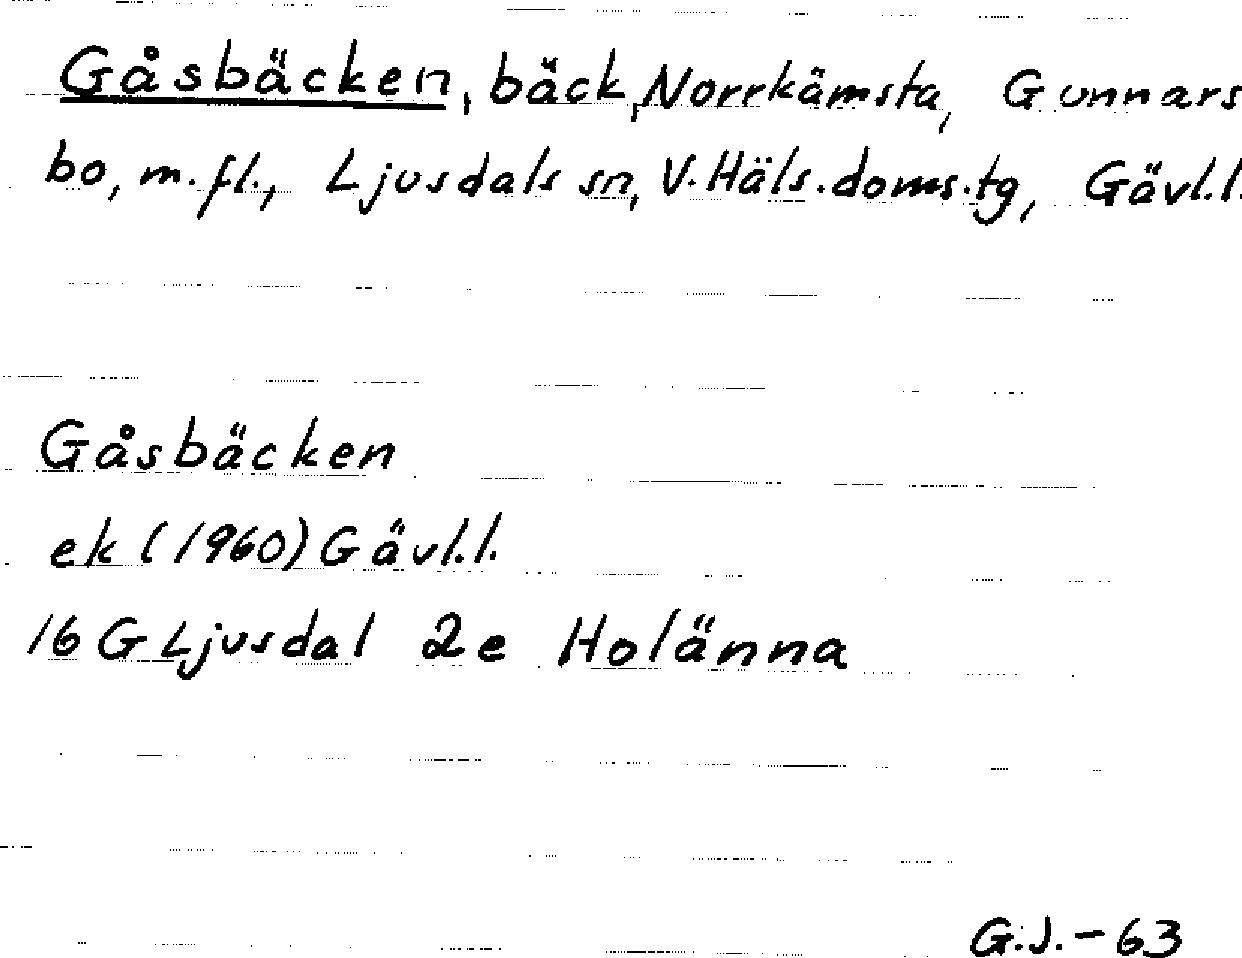 Gåsbäcken, bäck, Norrkämsta, Gunnars
bo, m.fl., Ljusdals sn, V.Häls.doms.tg, Gävl.l.
Gåsbäcken
ek (1960) Gävl.l.
16 G Ljusdal 2e Holänna
G.J.-63